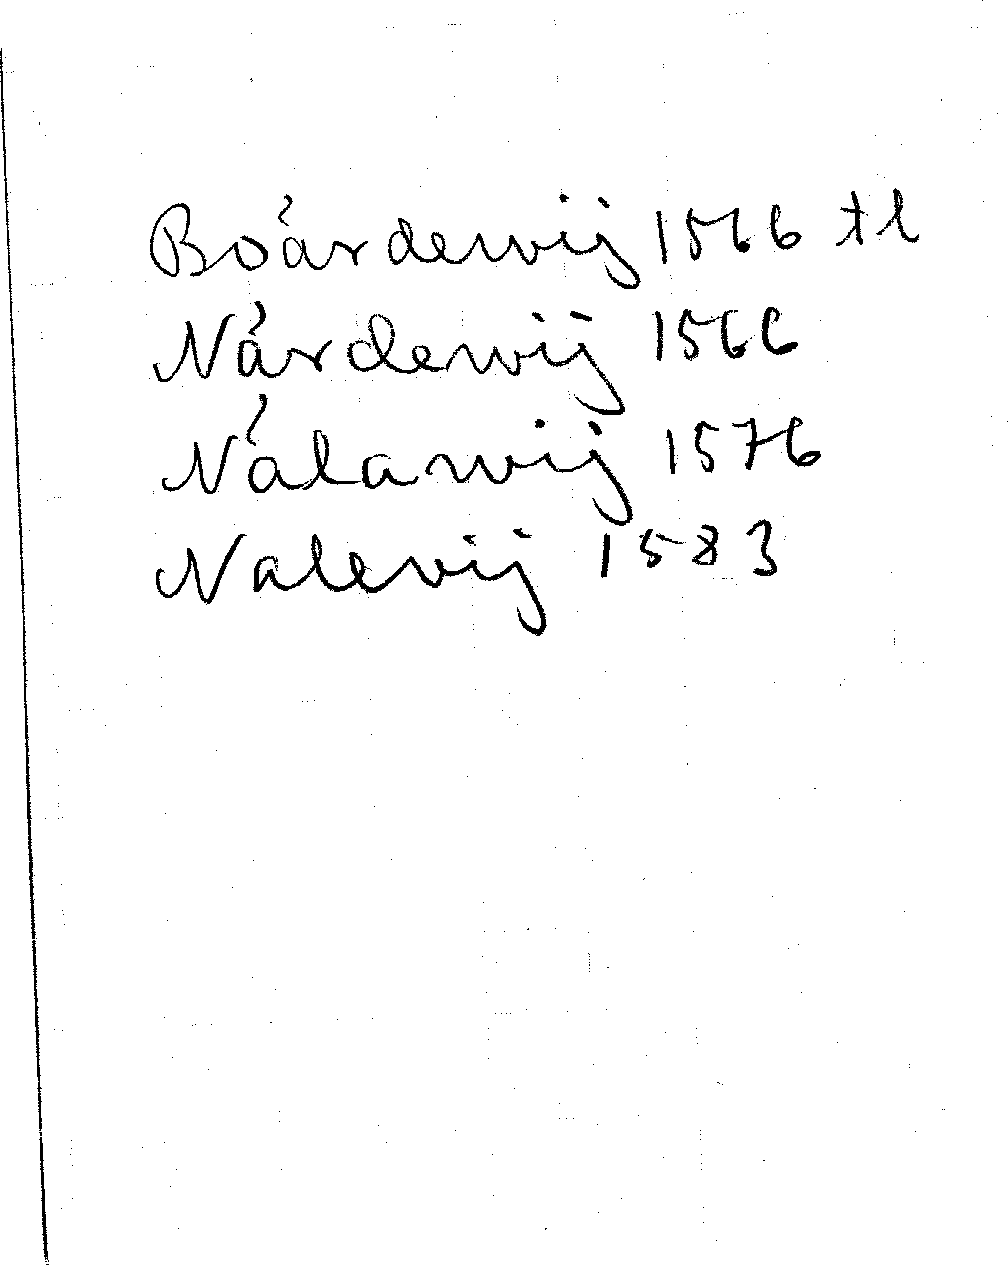 Boårdewij 1566 tl
Nårdewij 1566
Nålawij 1576
Nalevij 1583